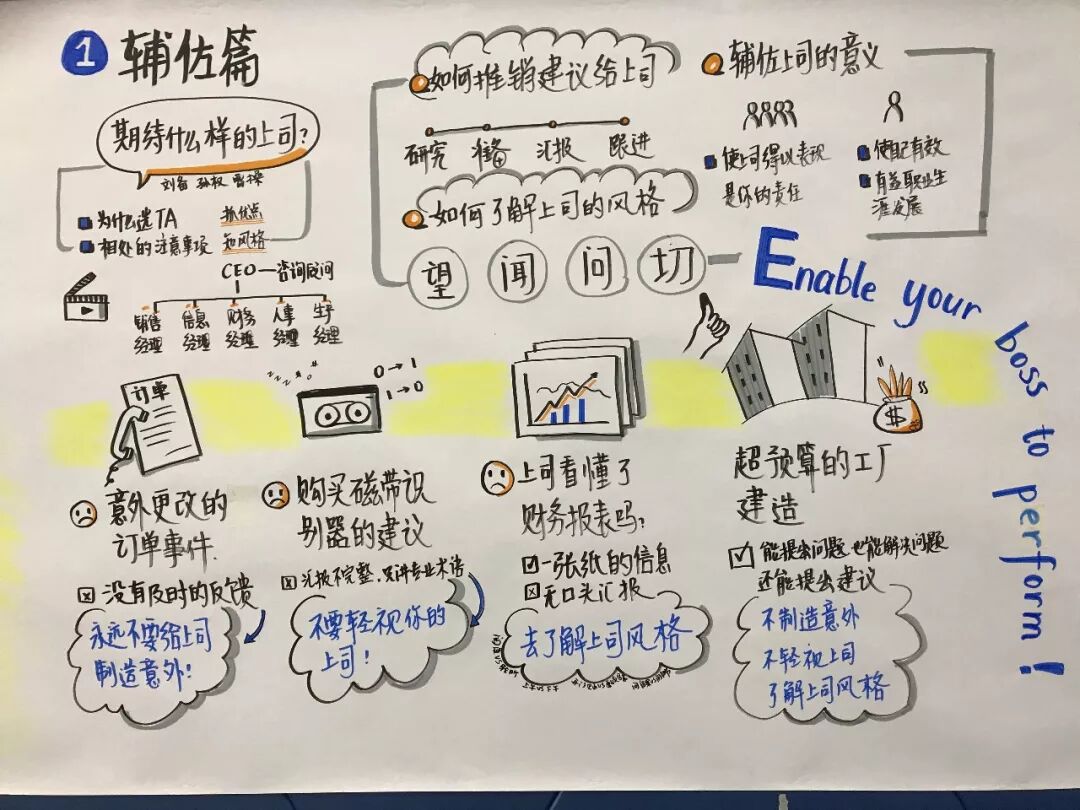 1 辅佐篇
期待什么样的上司?
刘备 孙权 曹操
为什么选TA 抓优点
相处的注意事项 知风格
如何推销建议给上司
研究 准备 汇报 跟进
如何了解上司的风格
望 闻 问 切
辅佐上司的意义
使上司得以表现
是你的责任
使自己有效
有益职业生
涯发展
Enable your boss to perform!
CEO—咨询顾问
销售
经理
信息
经理
财务
经理
人事
经理
生产
经理
订单
意外更改的
订单事件.
没有及时的反馈
永远不要给上司
制造意外!
zzz
0→1
1→0
购买磁带识
别器的建议
汇报不完整,只讲专业术语
不要轻视你的
上司!
上司看懂了
财务报表吗?
一张纸的信息
无口头汇报
去了解上司风格
$
超预算的工厂
建造
能提出问题,也能解决问题
还能提出建议
不制造意外
不轻视上司
了解上司风格